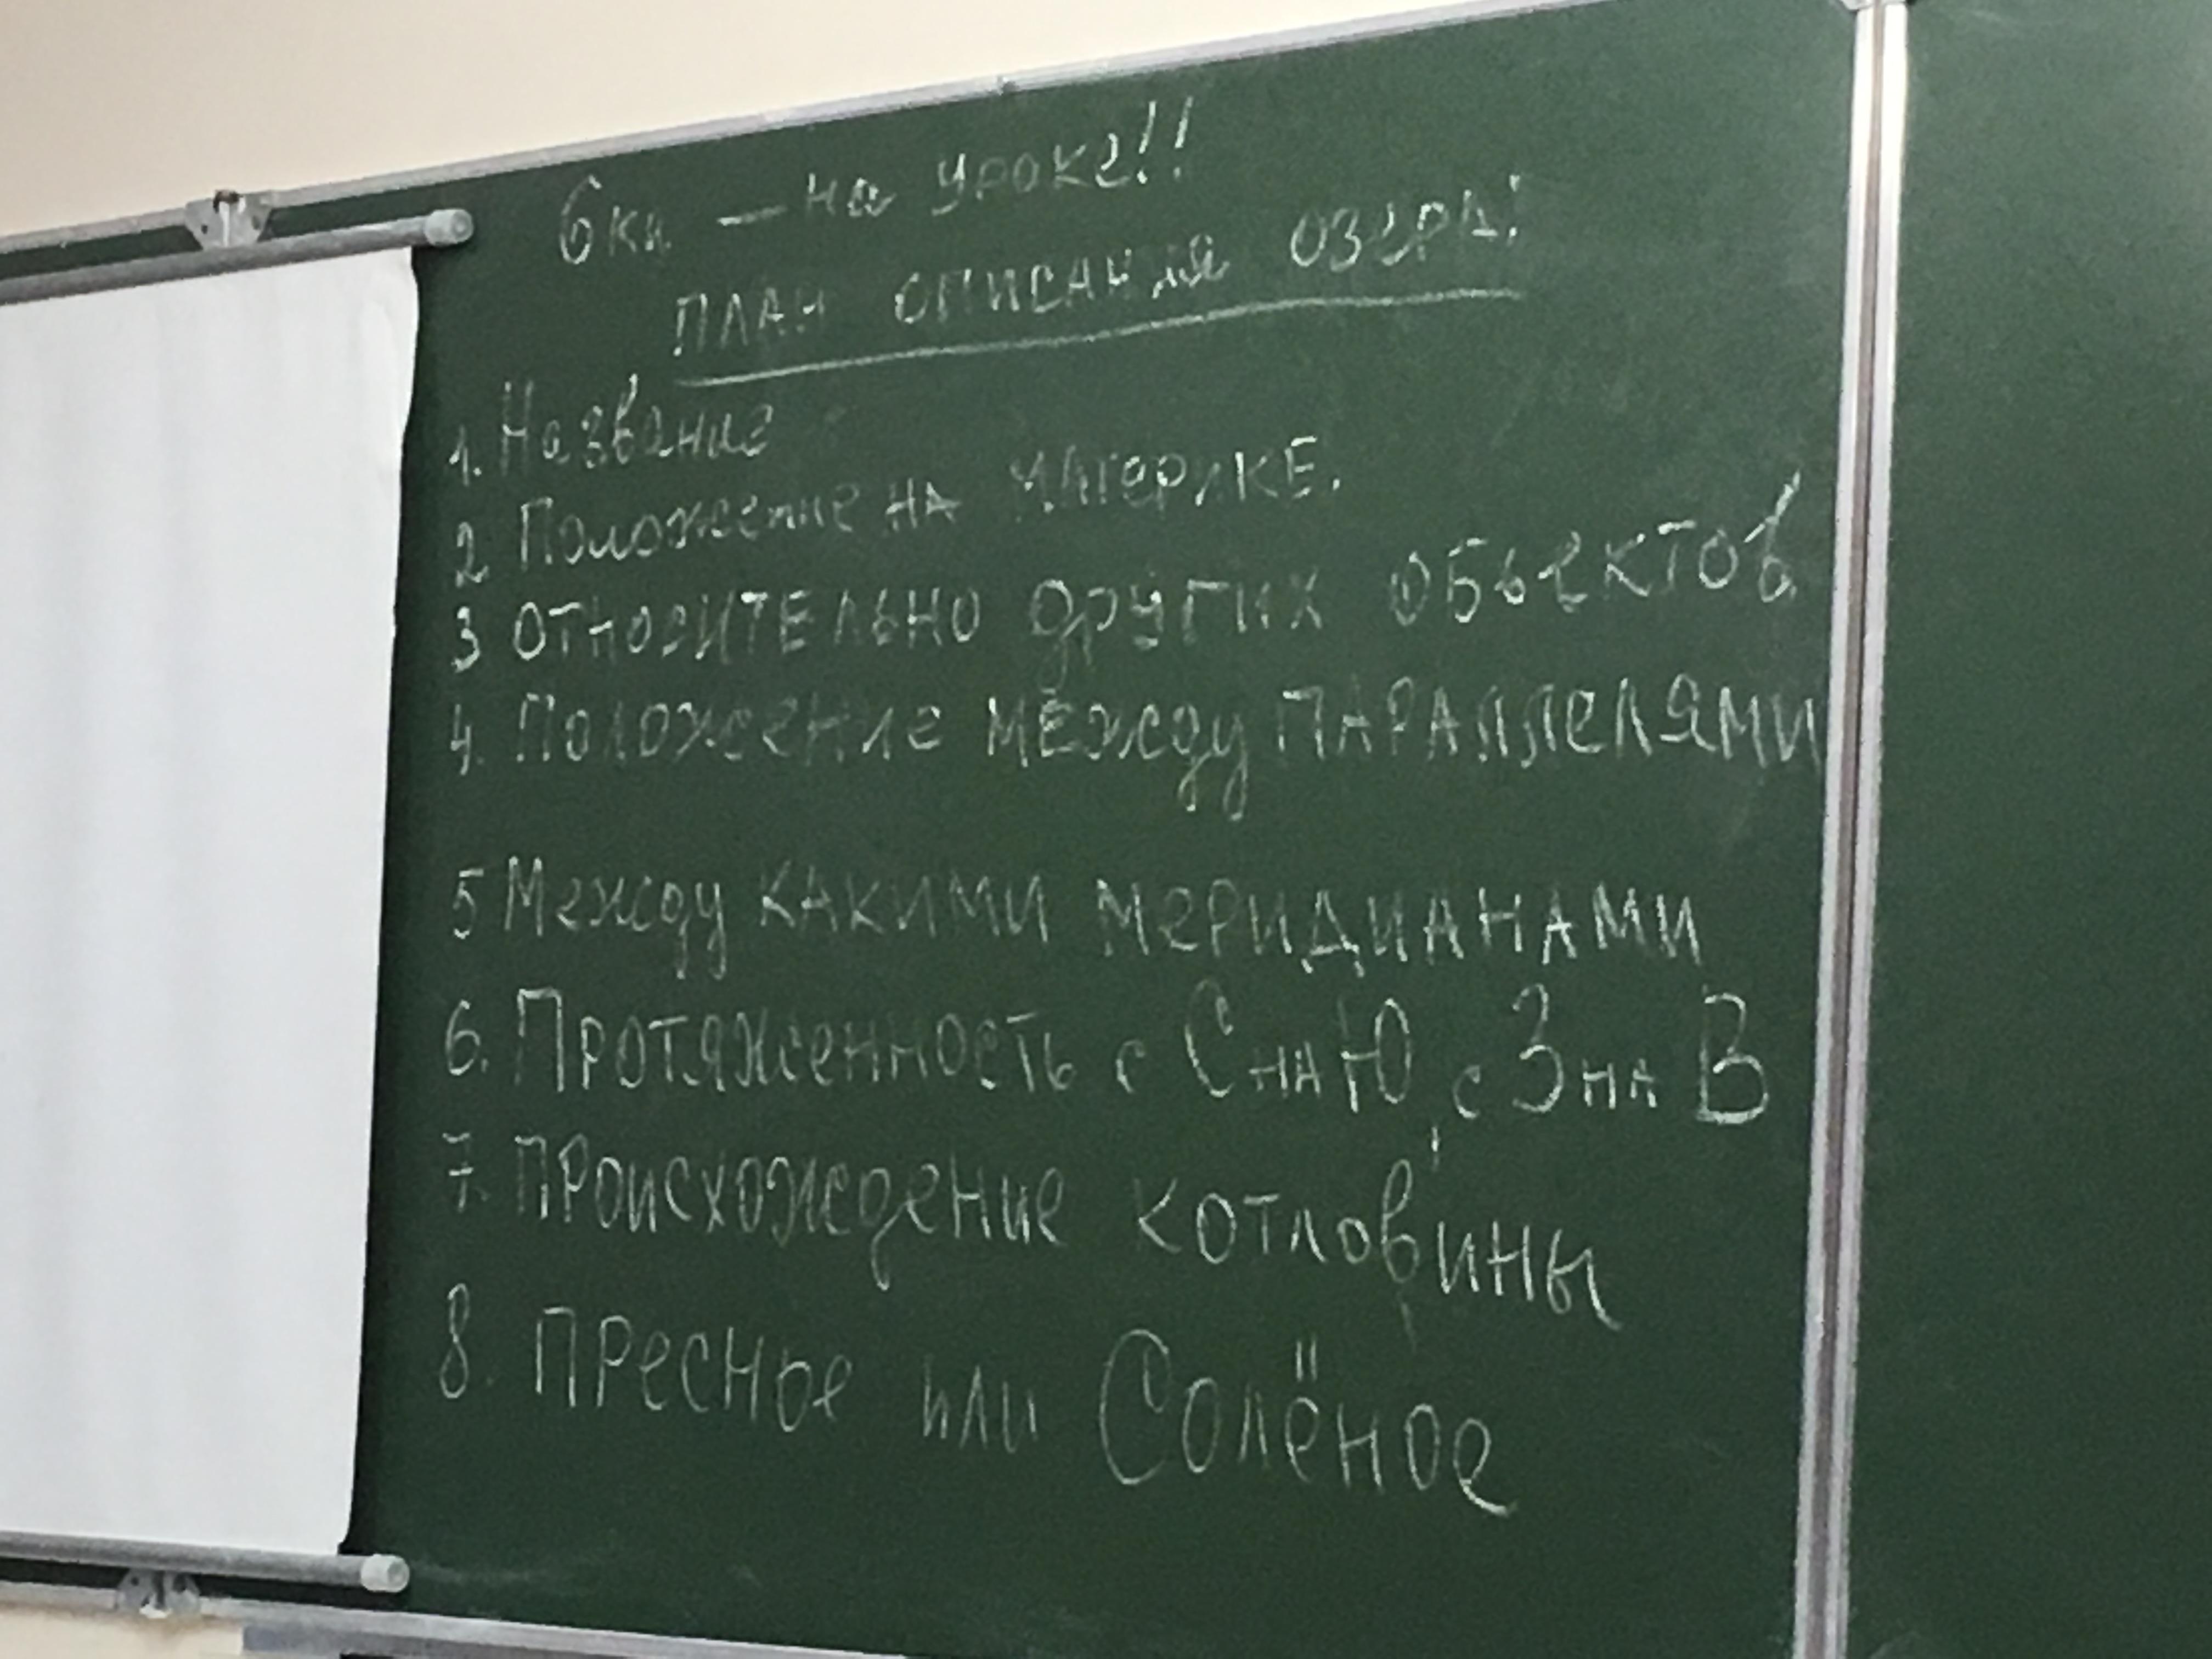 6кл — на уроке!!
План описания озера:
1. Название
2 Положение на материке.
3 Относительно других объектов
4. Положение между параллелями
5 Между какими меридианами
6. Протяженность с С на Ю, с З на В
7. Происхождение котловины
8. Пресное или Солёное